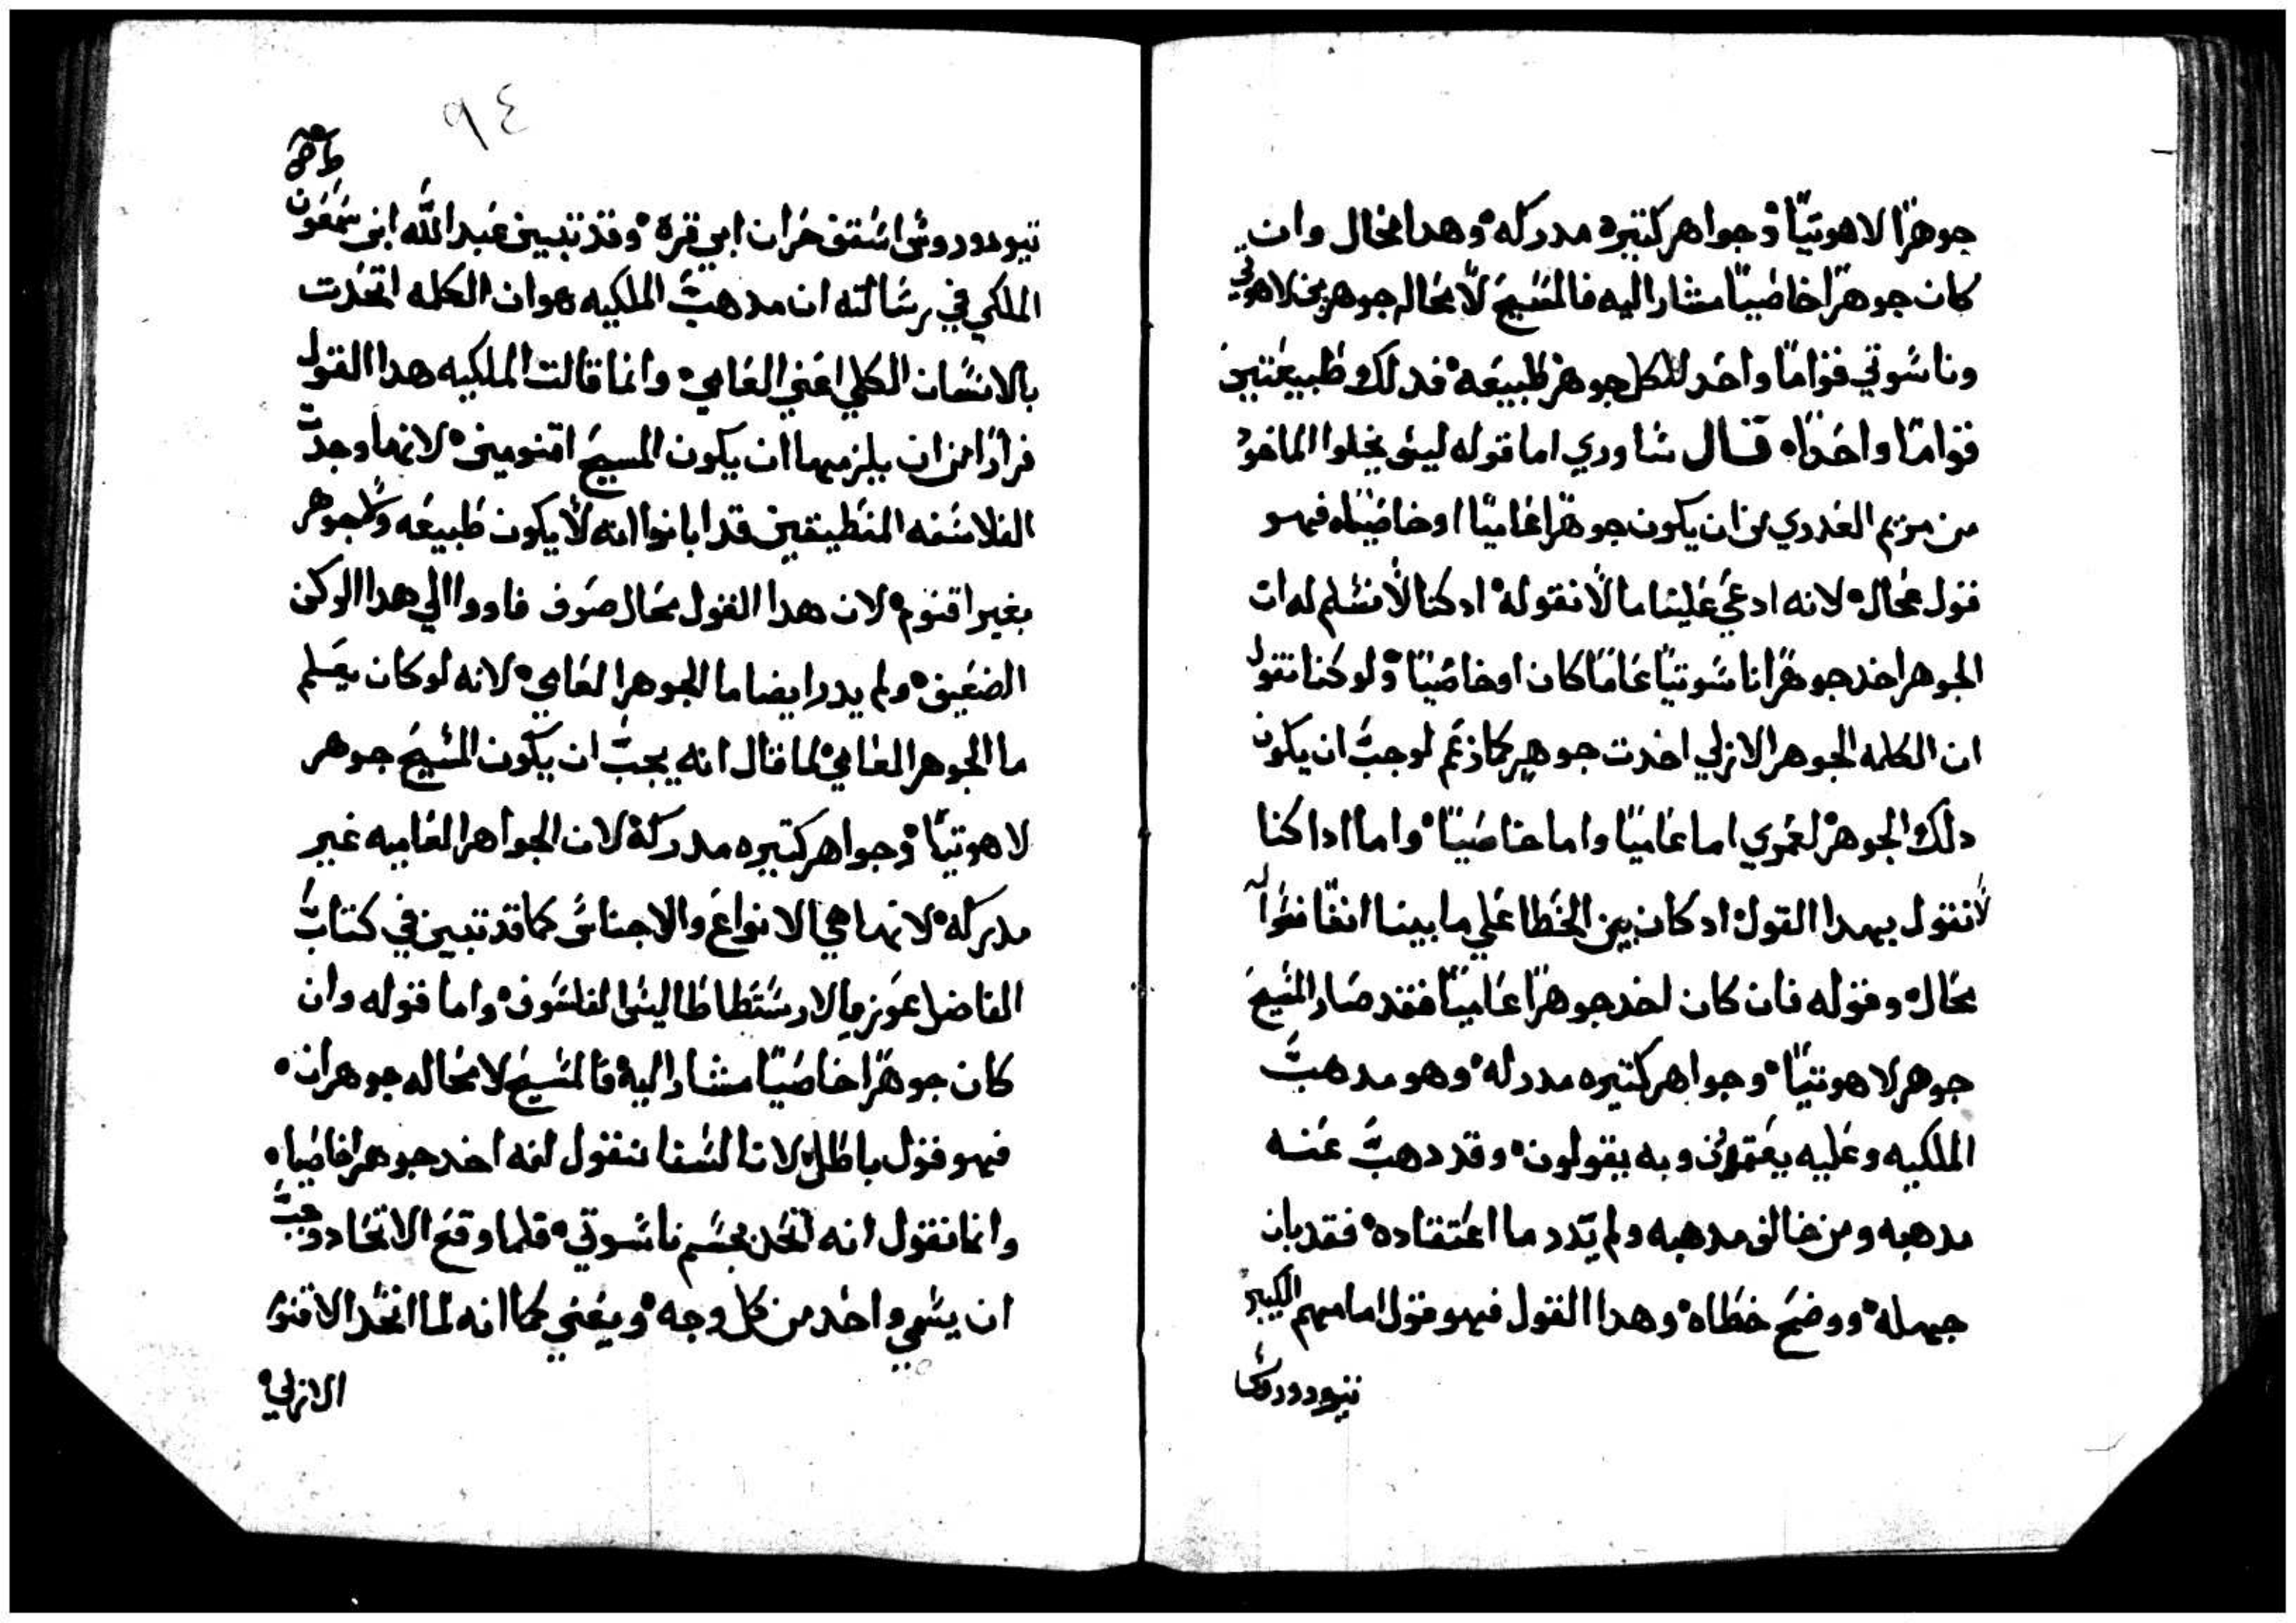 جوهرًا لاهوتيًا وجواهر كتيره مدركه وهدا محال وان
كان جوهرًا خاصيًا مشارا اليه فالمسيح لا محاله جوهرين لاهوتي
وناسوتي قوامًا واحد لكل جوهر طبيعه فدلك طبيعتين
قوامًا واحدًا قال شاوري اما قوله ليس يخلوا الماخود
من مريم العدري من ان يكون جوهرًا عاميًا او خاصيًا فهو
قول محال لانه ادعي علينا ما لا نقوله اد كنا لا نسلم له ان
الجوهر اخد جوهرًا ناسوتيًا عامًا كان او خاصيًا ولو كنا نقول
ان الكلمه الجوهر الازلي اخدت جوهر كما زعم لوجب ان يكون
دلك الجوهر اما عاميًا واما خاصيًا واما ادا كنا
لا نقول بهدا القول اد كان بين الخطا علي ما بينا انفًا فقوله
محال وقوله فان كان اخد جوهرًا عاميًا فقد صار المسيح
جوهر لاهوتيًا وجواهر كتيره مدركه وهو مدهب
الملكيه وعليه يعتمدون وبه يقولون وقد دهب عنه
مدهبه ومن خالف مدهبه ولم يدر ما اعتقاده فقد بان
جهله ووضح خطاه وهدا القول فهو قول امامهم الكبير
تيودوروس
٩٤
تيودوروس اسقف حران ابي قره وقد تبين عبد الله ابن سمعون
الملكي في رسالته ان مدهب الملكيه هو ان الكلمه اتحدت
بالانسان الكلي اعني العامي وانما قالت الملكيه هدا القول
فرارًا من ان يلزمها ان يكون المسيح اقنومين لانها وجدت
الفلاسفه المنطيقين قد ابانوا انه لا يكون طبيعه ولا جوهر
بغير اقنوم لان هدا القول محال صرف فاووا الي هدا الركن
الضعيف ولم يدر ايضا ما الجوهر العامي لانه لو كان يعلم
ما الجوهر العامي لما قال انه يجب ان يكون المسيح جوهر
لاهوتيًا وجواهر كتيره مدركه لان الجواهر العاميه غير
مدركه لانها هي الانواع والاجناس كما قد تبين في كتاب
الفاضل الارسطاطاليس الفلسوف واما قوله وان
كان جوهرًا خاصيًا مشارا اليه فالمسيح لا محاله جوهران
فهو قول باطل لانا لسنا نقول انه اخد جوهرا خاصيا
وانما نقول انه اتحد بجسم ناسوتي فلما وقع الاتحاد وجب
ان يسمي واحد من كل وجه ويعني كما انه لما اتحد الاقنوم
الازلي